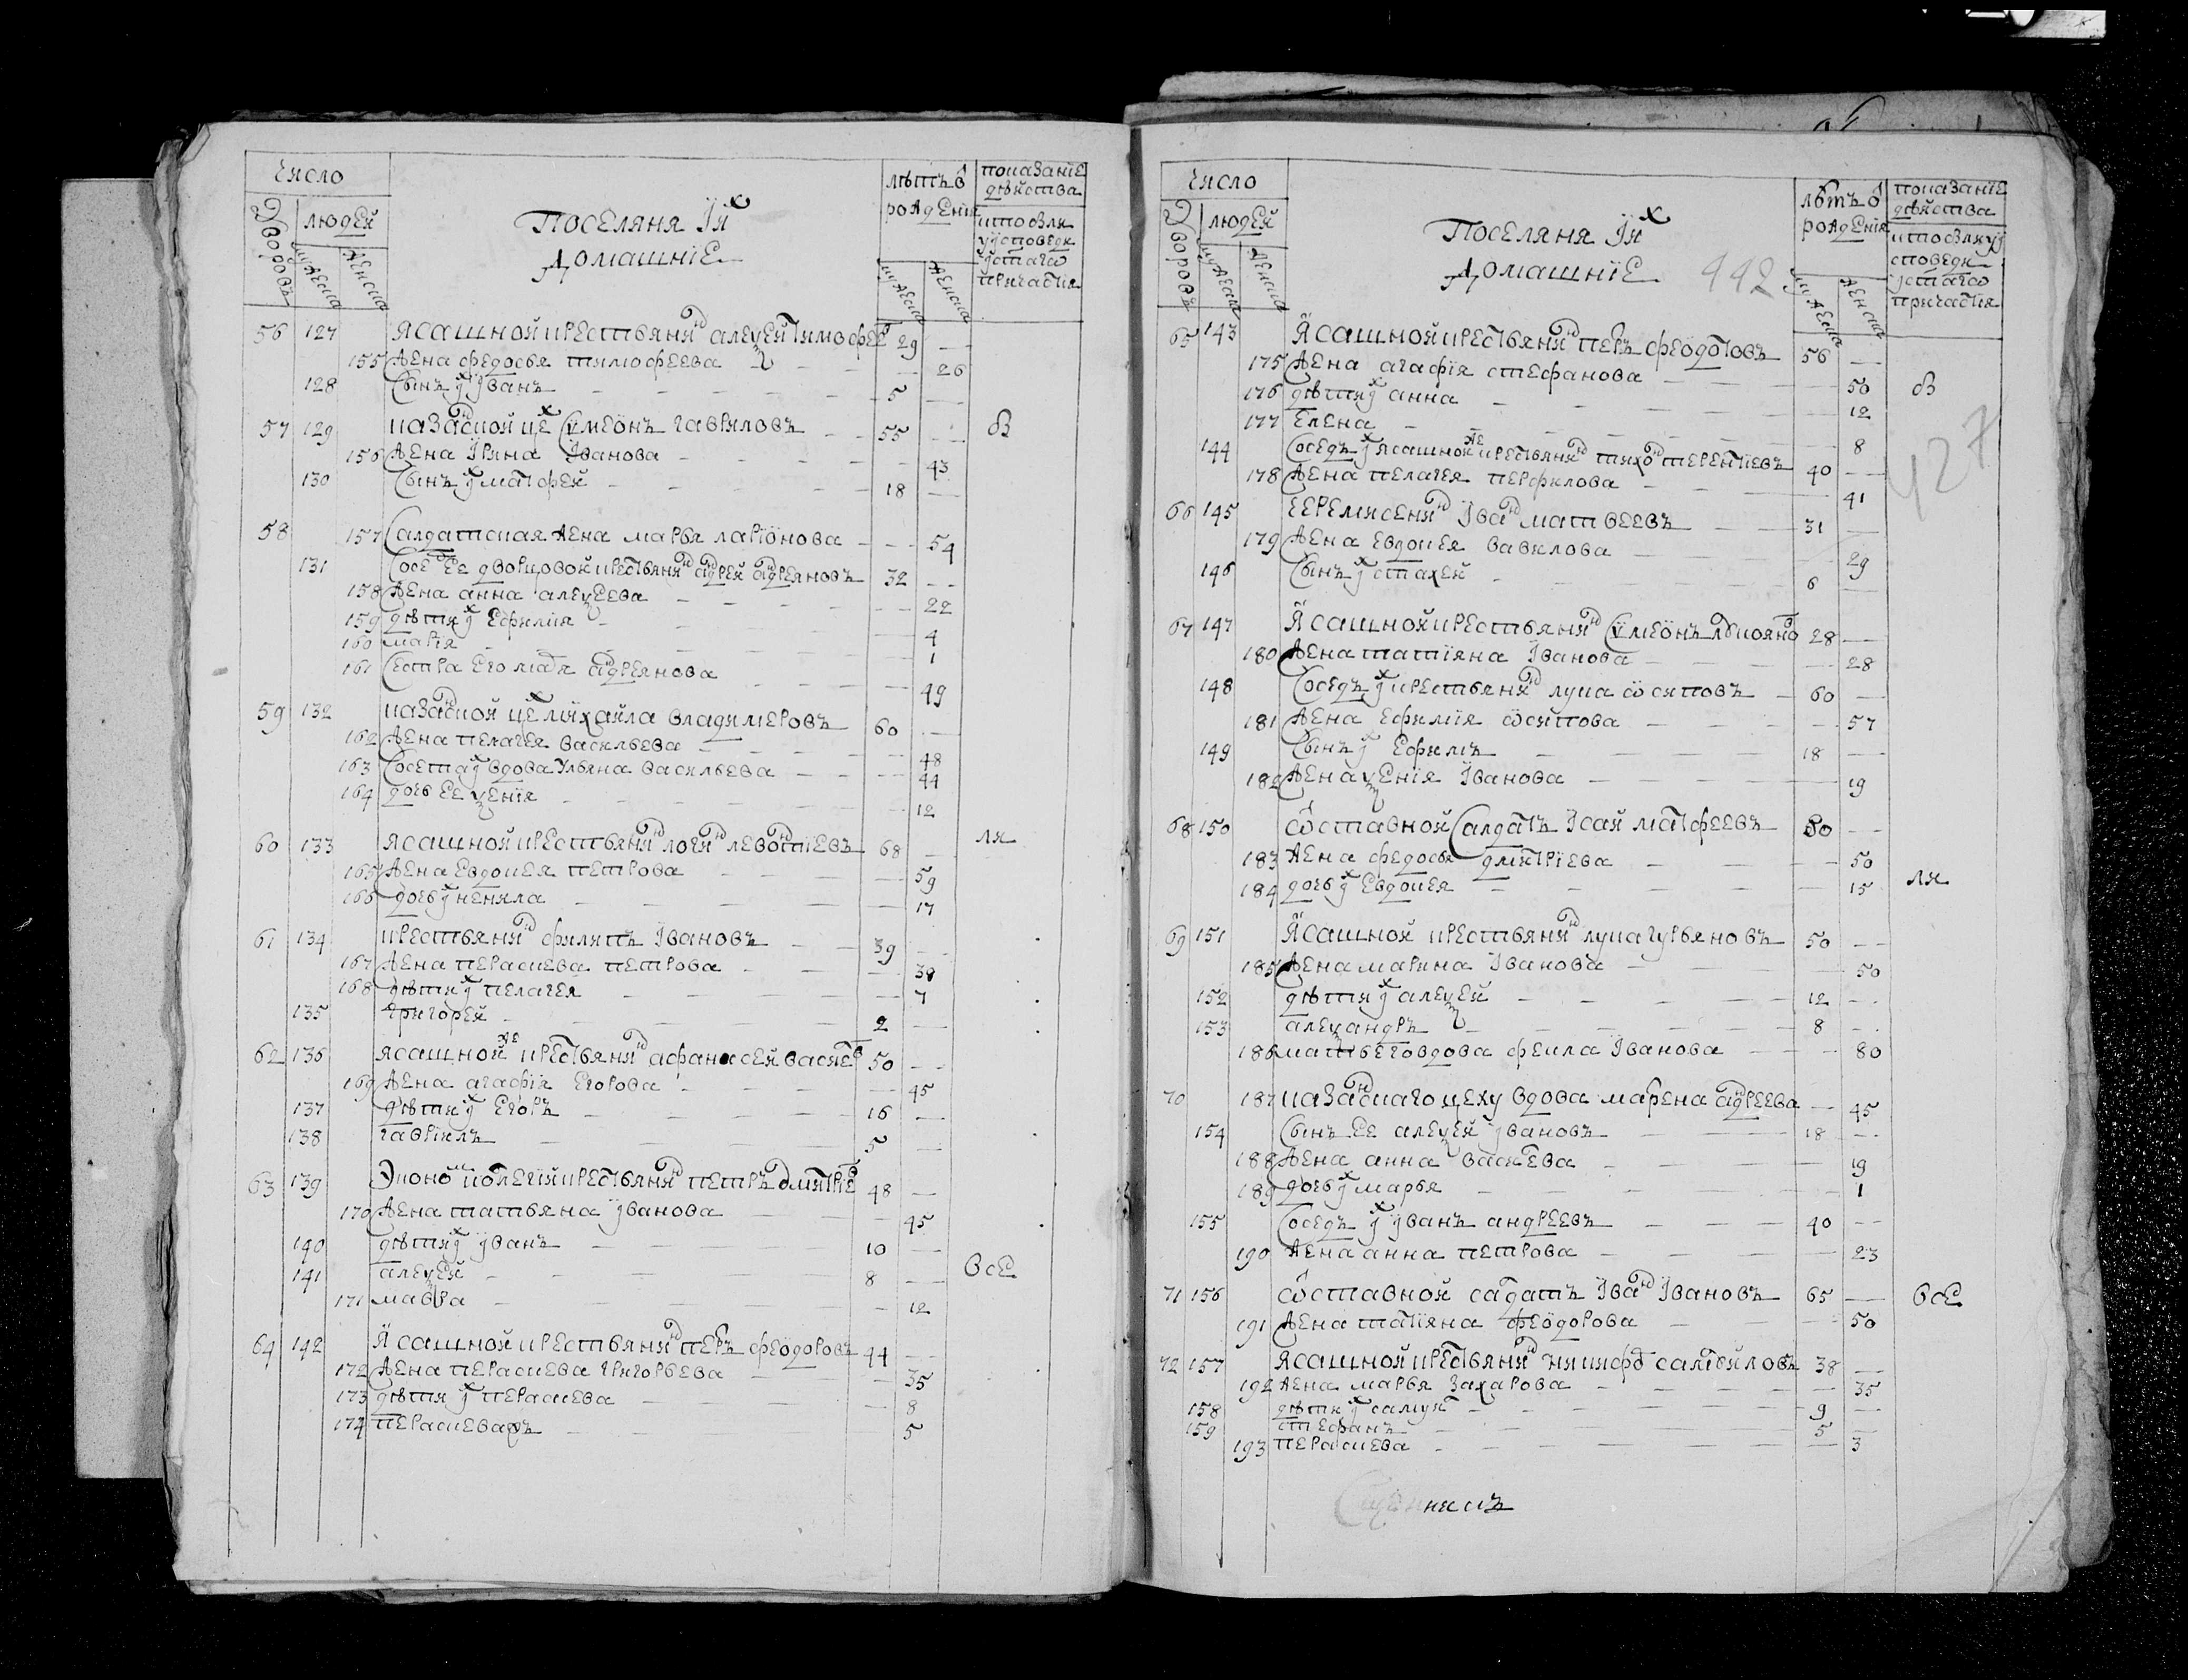 Число
Дворовъ
людей
мужеска
женска
Поселяня їихъ
домашнїе
лѣтъ ѿ
рождения
мужеска
женска
показанїе
дѣйства
кто былъ
у исповеди
и стаго
причастїя
56 127 Ясашной крестьянинъ алеѯей тимофее 29 —
155 жена федосья тимофеева — 26
128 Сынъ ихъ ѵванъ 5 —
57 129 казанской це Сѵмеонъ гавриловъ 55 — в
156 жена Їрина Їванова — 43
130 Сынъ ихъ матфей 18 —
58 157 Салдатская жена марья ларїонова — 54
131 Сосед ее дворцовой крестьянинъ адрей адреяновъ 32 —
158 жена анна алеѯеева — 22
159 дѣти ихъ Ефимия — 4
160 мария — 1
161 Сестра его адреянова — 49
59 132 казанской цех михайла владимеровъ 60 —
162 жена пелагея васильева — 48
163 Соседка их вдова Ульяна васильева — 44
164 дочь ее ѯенїя — 12
60 133 Ясашной крестьянинъ логинъ леонтїевъ 68 — ли
165 жена Евдокея петрова — 59
166 дочь ихъ ненила — 17
61 134 крестьянинъ филипъ Івановъ 39 —
167 жена параскева петрова — 38
168 дѣти ихъ пелагея — 7
135 григорей 2 —
62 136 ясашной же крестьянинъ афанасей васиев 50 —
169 жена агафїя Егорова — 45
137 дѣти ихъ Егоръ 16 —
138 гаврїилъ 5 —
63 139 Эконом колегїи крестьянинъ петръ дмитрие 48 —
170 жена татьяна ѵванова — 45
140 дѣти ихъ ѵванъ 10 —
141 алеѯей 8 — всѣ
171 мавра — 12
64 142 Ясашной крестьянинъ петръ феодоровъ 44 —
172 жена параскева григорьева — 35
173 дѣти ихъ параскева — 8
174 параскева ж — 5
Число
Дворовъ
людей
мужеска
женска
Поселяня їихъ
домашнїе
442
лѣтъ ѿ
рождения
мужеска
женска
показанїе
дѣйства
кто былъ у и
споведи
и стаго
причастїя
65 143 Ясашной крестьянинъ петръ феодотовъ 56 —
175 жена агафїя стефанова — 50 в
176 дѣти ихъ анна — 12
177 Елена — 8
427
144 Соседъ их ясашной же крестьянинъ тихон терентїевъ 40 —
178 жена пелагея перфилова — 41
66 145 Черемисенинъ Їван матвеевъ 31 —
179 жена Евдокея вавилова — 29
146 Сынъ ихъ стахей 6 —
67 147 Ясашной крестьянинъ Сѵмеонъ лукояно 28 —
180 жена татїяна Їванова — 28
148 Соседъ их крестьянинъ лука ѡсиповъ 60 —
181 жена Ефимїя ѡсипова — 57
149 Сынъ ихъ Ефимъ 18 —
182 жена ѯенїя Їванова — 19
68 150 ѿставной Салдатъ Їсай матфеевъ 80 —
183 жена федосья дмитрїева — 50
184 дочь ихъ Евдокея — 15 ли
69 151 Ясашной крестьянинъ лука гурьяновъ 50 —
185 жена марина Їванова — 50
152 дѣти ихъ алеѯей 12 —
153 алеѯандръ 8 —
186 мать его вдова фекла Їванова — 80
70 187 казанскаго цеху вдова марена андреева — 45
154 Сынъ ее алеѯей ѵвановъ 18 —
188 жена анна васиева — 19
189 дочь ихъ марья — 1
155 Соседъ ихъ ѵванъ андреевъ 40 —
190 жена анна петрова — 23
71 156 ѿставной садатъ Їван Ївановъ 65 — всѣ
191 жена татїяна феодорова — 50
72 157 Ясашной крестьянинъ никифоръ самойловъ 38 —
192 жена марья захарова — 35
158 дѣти ихъ самуил 9 —
159 стефанъ 5 —
193 параскева — 3
никъ